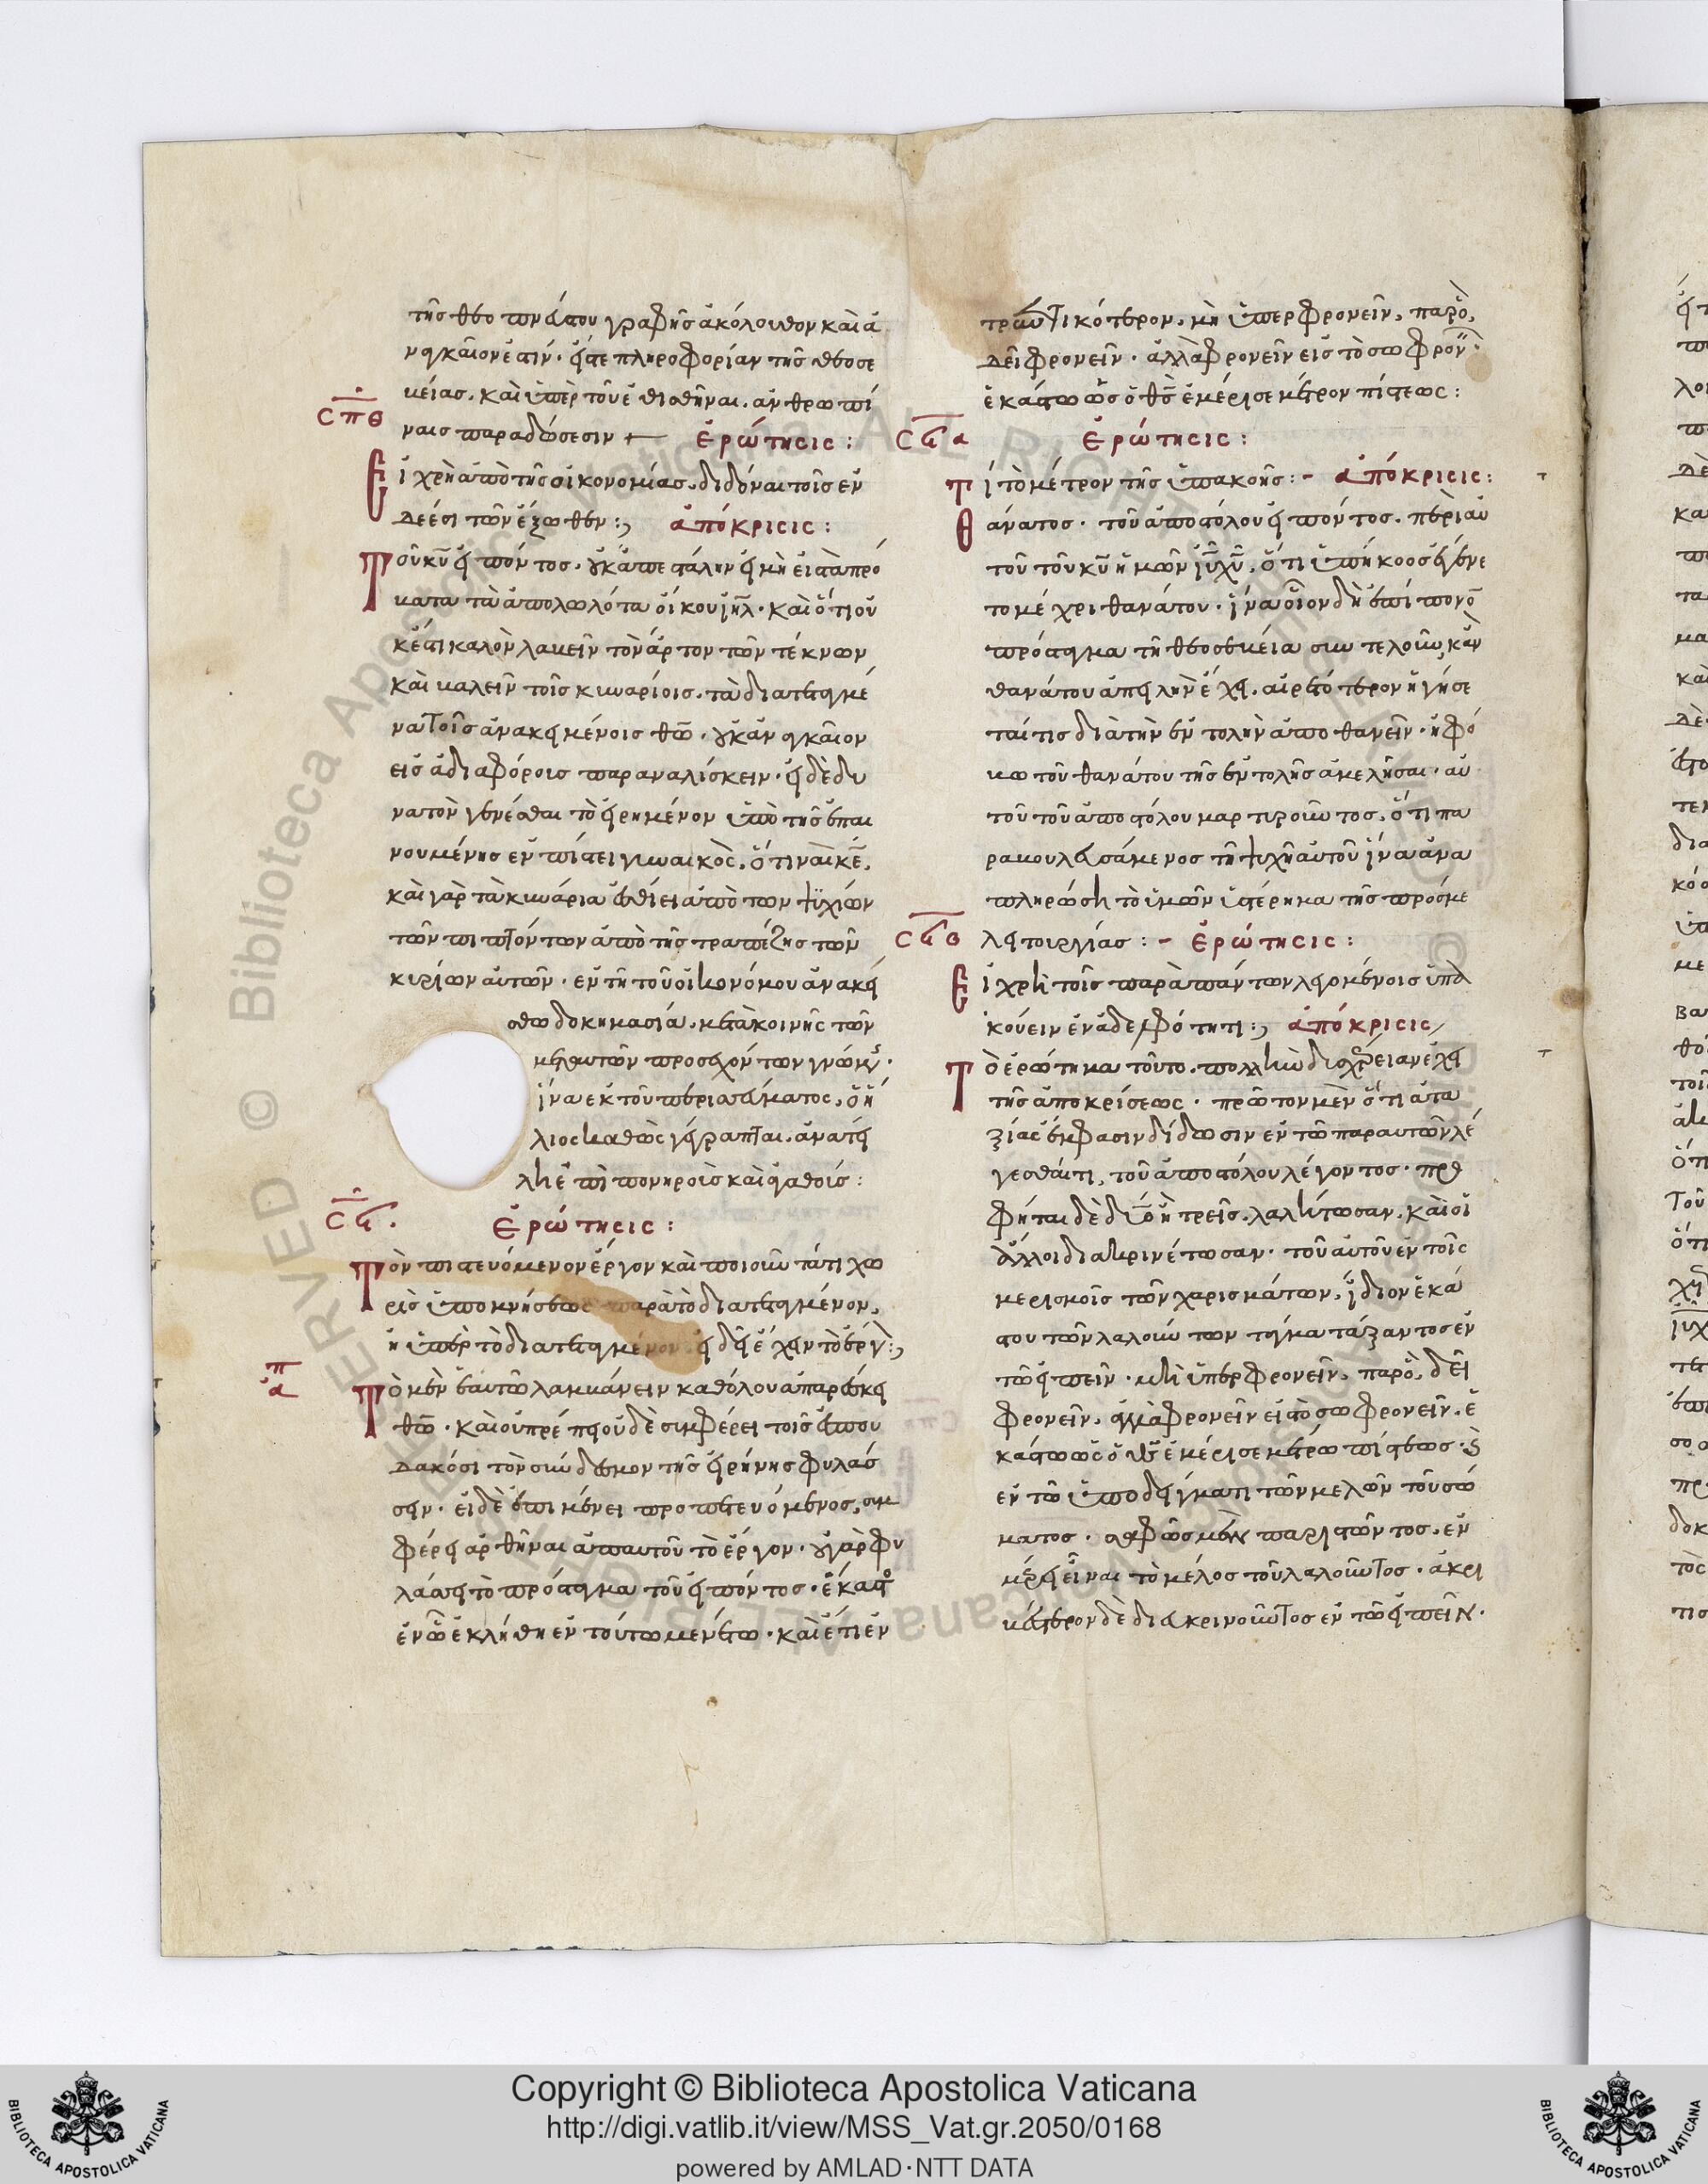 τῆς θεοπνεύστου γραφῆς ἀκόλουθον καὶ ἀ
ναγκαῖον ἐστίν· εἴς τε πληροφορίαν τῆς θεοσε
βείας. καὶ ὑπὲρ τοῦ ἐθισθῆναι. ἀνθρωπί
ναις παραδόσεσιν
σπθ ἐρώτησις:
Εἰ χρὴ ἀπὸ τῆς οἰκονομίας. διδόναι τοῖς ἐν
δεέσι τῶν ἔξωθεν: ἀπόκρισις:
Τοῦ κυ εἰπόντος. οὐκ ἀπεστάλην εἰ μὴ εἰς τὰ πρό
βατα τὰ ἀπολωλότα οἴκου ιηλ. καὶ ὅτι οὐ
κέστι καλὸν λαβεῖν τὸν ἄρτον τῶν τέκνων
καὶ βαλεῖν τοῖς κυναρίοις. τὰ διατεταγμέ
να τοῖς ἀνακειμένοις θω. οὐκ ἀναγκαῖον
εἰς ἀδιαφόροις παραναλίσκειν. εἰ δὲ δυ
νατὸν γενέσθαι τὸ εἰρημένον ὑπὸ τῆς ἐπαι
νουμένης ἐν πίστει γυναικός. ὅτι ναὶ κε.
καὶ γὰρ τὰ κυνάρια ἐσθίει ἀπὸ τῶν ψιχίων
τῶν πιπτόντων ἀπὸ τῆς τραπέζης τῶν
κυρίων αὐτῶν· ἐν τῆ τοῦ οἰκονόμου ἀνακεί
σθω δοκημασία. μετὰ κοινῆς τῶν
μεταυτῶν προσχόντων γνώμης.
ἵνα ἐκ τοῦ περισσεύματος. ὁ ἥ
λιος καθὼς γέγραπται. ἀνατεί
λη ἐπὶ πονηροὶς καὶ ἀγαθοίς:
σϟ. ἐρώτησις:
Τὸν πιστευόμενον ἔργον καὶ ποιοῦντά τι χω
ρὶς ὑπομνήσεως παρὰ τὸ διατεταγμένον.
ἢ ὑπὲρ τὸ διατεταγμένον. εἰ δεῖ ἔχειν τὸ ἔργ:
Τὸ μὲν ἑαυτῶ λαμβάνειν καθόλου ἀπαρέσκει
θω. καὶ οὐ πρέπει οὐδὲ συμφέρει τοῖς ἐσπου
δακόσι τὸν σύνδεσμον τῆς εἰρήνης φυλάσ
σειν. εἰ δὲ ἐπιμένει προπετευόμενος, συμ
φέρει ἀρθῆναι ἀπ' αὐτοῦ τὸ ἔργον. οὐ γὰρ φυ
λάσσει τὸ πρόσταγμα τοῦ εἰπόντος. ἕκαστος
ἐν ὧ ἐκλήθη ἐν τούτω μενέτω. καὶ ἔτι ἐν
τρεπτικότερον, μὴ ὑπερφρονεῖν, παρ' ὃ,
δεῖ φρονεῖν. ἀλλὰ φρονεῖν εἰς τὸ σωφρον.
ἑκάστω ὡς ὁ θς ἐμέρισε μέτρον πίστεως:
σϟα ἐρώτησις:
Τί τὸ μέτρον τῆς ὑπακοῆς: ἀπόκρισις:
Θάνατος. τοῦ ἀποστόλου εἰπόντος. περὶ αὐ
τοῦ τοῦ κυ ἡμῶν ιυ χυ, ὅτι ὑπήκοος ἐγένε
το μέχρι θανάτου. ἵνα οἷον δὴ ἐπίπονο
πρόσταγμα τῆ θεοσεβεία συντελοῦν, κἂν
θανάτου ἀπειλὴν ἔχει. αἱρετότερον ἡγήσε
ταί τις διὰ τὴν ἐντολὴν ἀποθανεῖν. ἢ φό
βω τοῦ θανάτου τῆς ἐντολῆς ἀμελῆσαι. αὐ
τοῦ τοῦ ἀποστόλου μαρτυροῦντος, ὅτι πα
ραβουλευσάμενος τῆ ψυχῆ αὐτοῦ ἵνα ἀνα
πληρώση τὸ ὑμῶν ὑστέρημα τῆς πρός με
λειτουργίας: ἐρώτησις:
σϟβ
Εἰ χρὴ τοῖς παρὰ πάντων λεγομένοις ὑπα
κούειν ἐν ἀδελφότητι: ἀπόκρισις
Τὸ ἐρώτημα τοῦτο. πολλὴν δυσχέρειαν ἔχει
τῆς ἀποκρίσεως. πρῶτον μὲν ὅτι ἀτα
ξίας ἔμφασιν δίδωσιν ἐν τῶ παραυτῶν λέ
γεσθάι τι, τοῦ ἀποστόλου λέγοντος. προ
φῆται δὲ δύο ἢ τρεῖς. λαλήτωσαν. καὶ οἱ
ἄλλοι διακρινέτωσαν. τοῦ αὐτοῦ ἐν τοῖς
μερισμοῖς τῶν χαρισμάτων. ἴδιον ἑκά
στου τῶν λαλούντων τάγμα τάξαντος ἐν
τῶ εἰπεῖν. μὴ ὑπερφρονεῖν, παρ' ὃ, δεῖ
φρονεῖν, ἀλλὰ φρονεῖν εἰς τὸ σωφρονεῖν. ἑ
κάστω ὡς ὁ θς ἐμέρισε μέτρω πίστεως.
ἐν τῶ ὑποδείγματι τῶν μελῶν τοῦ σώ
ματος. σαφῶς μὲν παριστῶντος. ἐν
μέρει εἶναι τὸ μέλος τοῦ λαλοῦντος. ἀκρι
βέστερον δὲ διακρινοῦντος ἐν τῶ εἰπεῖν.
Copyright © Biblioteca Apostolica Vaticana
http://digi.vatlib.it/view/MSS_Vat.gr.2050/0168
powered by AMLAD·NTT DATA